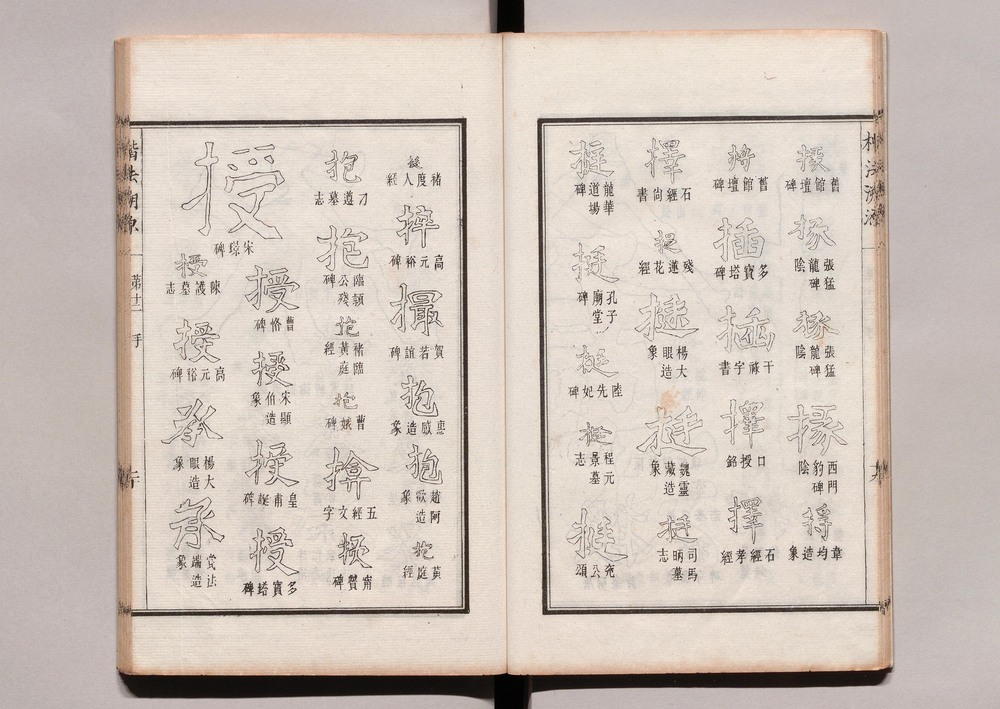 援
舊館壇碑
張猛龍碑陰
張猛龍碑陰
掾
西門豹碑陰
韋均造象
舊館壇碑
插
多寶塔碑
干祿字書
擇
口授銘
擇
石經孝經
擇
石經尚書
殘蓮花經
楊大眼造象
挺
魏靈藏造象
挺
司馬昞墓志
挺
龍華道場碑
挺
孔子廟堂碑
挺
陸先妃碑
挺
程元景墓志
挺
兖公頌
楷法溯源
褚度人經
捽
高元裕碑
撮
賀若誼碑
抱
惠感造象
抱
趙阿歡造象
抱
黃庭經
抱
刁遵墓志
抱
臨潁公殘碑
抱
褚臨黃庭經
抱
曹娥碑
揜
五經文字
甯贙碑
授
宋璟碑
授
曹恪碑
授
宋顯伯造象
授
皇甫誕碑
授
多寶塔碑
授
陳護墓志
授
高元裕碑
承
楊大眼造象
承
法端造象
楷法溯源
第十二
手